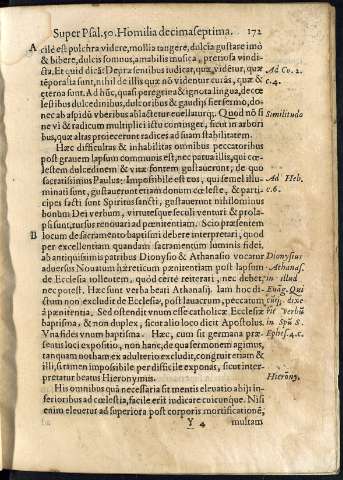 Super Psal. 50. Homilia decimaseptima. 172
A cile est pulchra videre, mollia tangere, dulcia gustare imò
& bibere, dulcis somnus, amabilis musica, preciosa vindi-
cta. Et quid dicā: De præsentibus iudicat, quæ vidētur, quæ Ad Co. 2.
tēporalia sunt, nihil de illis quæ nō videntur curās, quæ & c. 4.
ęterna sunt. Ad hūc, quasi peregrina & ignota lingua, de cœ
lestibus dulcedinibus, doloribus & gaudijs ser sermo, do-
nec ab aspidū vberibus ablactetur euellaturq;. Quod nō si Similitudo
ne vi & radicum multiplici ictu continget, sicut in arbori
bus, quæ altas proiecerunt radices ad suam stabilitatem.
Hæc difficultas & inhabilitas omnibus peccatoribus
post grauem lapsum communis est, nec patua illis, qui cœ-
lestem dulcedinem & vitæ fontem gustauerunt, de quo
sacratissimus Paulus: Impossibile est eos, qui semel illumi- Ad Heb.
nati sunt, gustauerunt etiam donum cœleste, & parti- c. 6.
cipes facti sunt Spiritus sancti, gustauerunt nihilominus
bonum Dei verbum, virtutesque seculi venturi & prola-
psi sunt, rursus renouari ad pœnitentiam. Scio præsentem
B locum de sacramento baptismi debere interpretari, quod
per excellentiam quandam sacramentum luminis fidei,
ab antiquissimis patribus Dionysio & Athanasio vocatur Dionysius
aduersus Nouatum hæreticum pænitentiam post lapsum Athanas.
de Ecclesia tollentem, quòd certè reiterari, nec debet, in illud
nec potest. Hæc sunt verba beati Athanasij. Iam hoc di- Euāg. Qui
ctum non excludit de Ecclesia, post lauacrum, peccatorū dixe
à pænitentia. Sed ostendit vnum esse catholicæ Ecclesiæ rit verbū
baptisma, & non duplex, sicut alio loco dicit Apostolus. in Spū S.
Vna fides vnum baptisma. Hæc, cum sit germana præ- Ephes. 4. c.
sentis loci expositio, non hanc, de qua sermonem agimus,
tanquam notham ex adulterio excludit, congruit etiam &
illi, si tamen impossibile per difficile exponas, sicut inter-
pretatur beatus Hieronymis. Hierōny.
His omnibus quā necessaria sit mentis eleuatio ab ijs in-
ferioribus ad cœlestia, facilè erit iudicare cuicunque. Nisi
enim eleuetur ad superiora post corporis mortificationē,
Y 4 multam